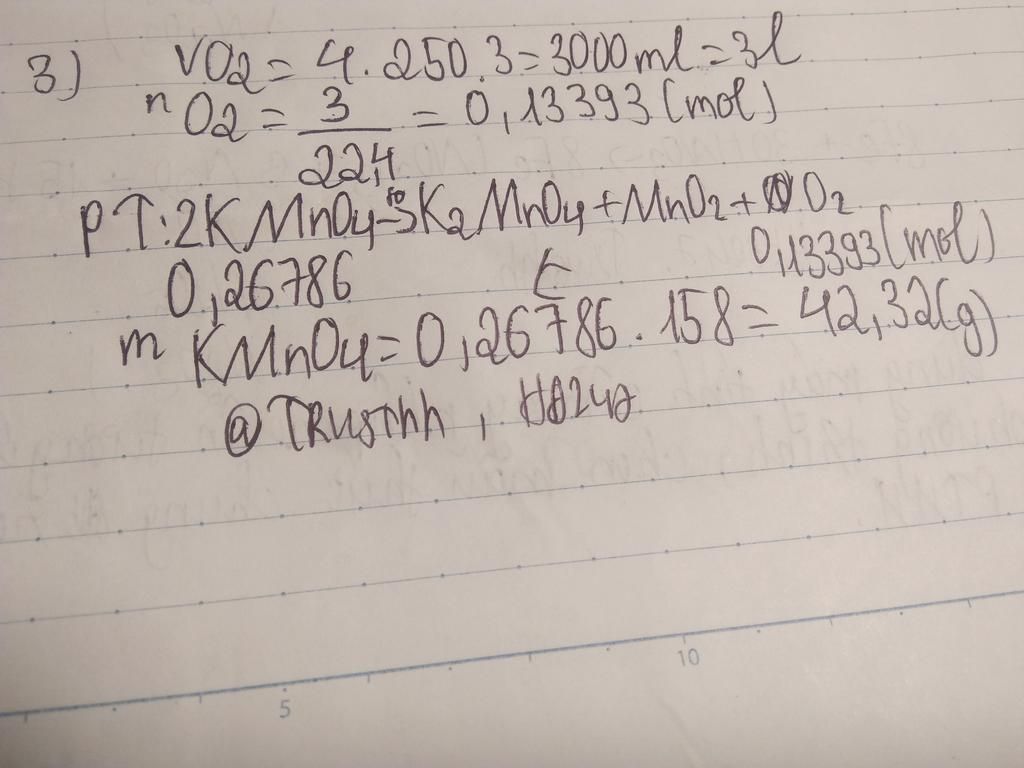 3) VO2 = 4.250.3 = 3000ml = 3l
nO2 = 3/22,4 = 0,13393 (mol)
PT: 2KMnO4 -to> K2MnO4 + MnO2 + O2
0,26786 ← 0,13393 (mol)
m KMnO4 = 0,26786.158 = 42,32(g)
@TRusthh,
5 10